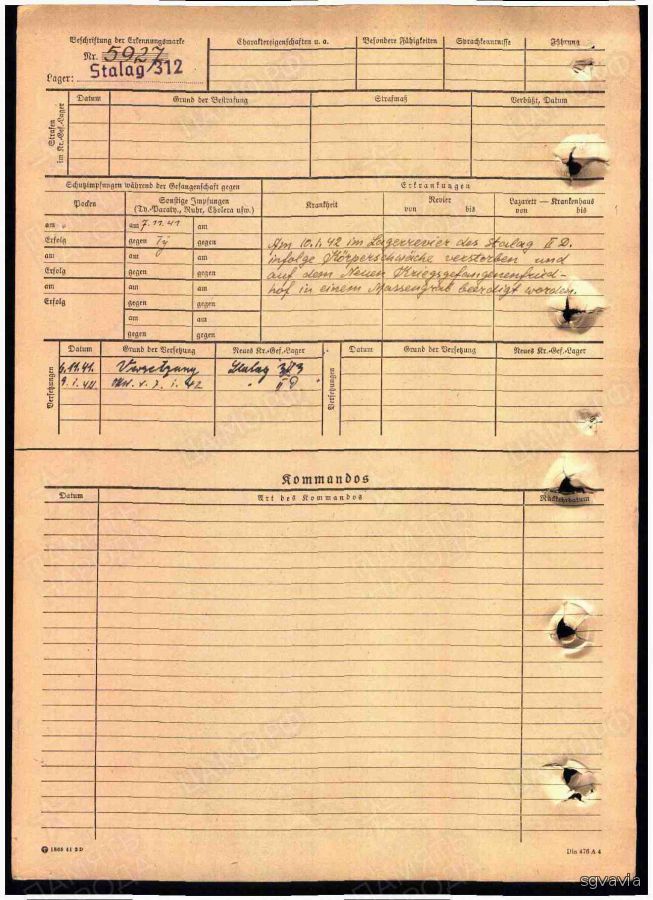 Beschriftung der Erkennungsmarke
Nr. 5927
Lager: Stalag 312
Charaktereigenschaften u. a.
Besondere Fähigkeiten
Sprachkenntnisse
Führung
Strafen im Kr.-Gef.-Lager
Datum
Grund der Bestrafung
Strafmaß
Verbüßt, Datum
Schutzimpfungen während der Gefangenschaft gegen
Erkrankungen
Pocken
Sonstige Impfungen
(Ty.-Paraty., Ruhr, Cholera usw.)
Krankheit
Revier
von bis
Lazarett — Krankenhaus
von bis
am
am 7.11.41 am
Erfolg
gegen Ty gegen
am
am am
Erfolg
gegen gegen
am
am am
Erfolg
gegen gegen
am
am am
Erfolg
gegen gegen
am am
gegen gegen
Am 10.1.42 im Lagerrevier des Stalag II D.
infolge Körperschwäche verstorben und
auf dem Neuen Kriegsgefangenenfried-
hof in einem Massengrab beerdigt worden.
Versetzungen
Datum
Grund der Versetzung
Neues Kr.-Gef.-Lager
6.11.41. Versetzung Stalag
9.1.42 1.42 " II D
Versetzungen
Datum
Grund der Versetzung
Neues Kr.-Gef.-Lager
Kommandos
Datum
Art des Kommandos
Rückkehrdatum
1868 41 2 D
Din 476 A 4
sgvavia